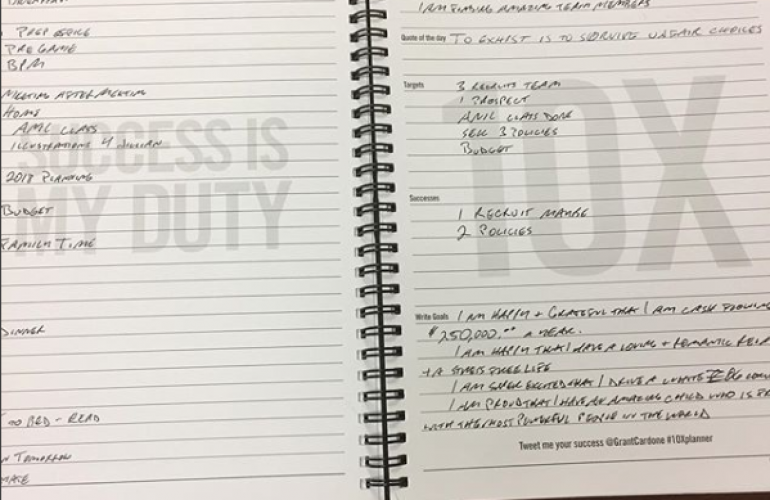 PREP OFFICE
PRE GAME
BPM
MEETING AFTER MEETING
HOME
AML CLASS
ILLUSTRATIONS 4
2018 PLANNING
BUDGET
FAMILY TIME
DINNER
BED - READ
TOMORROW
SUCCESS IS
MY DUTY
I AM AMAZING TEAM MEMBERS
Quote of the day TO EXHIST IS TO SURVIVE UNFAIR CHOICES
Targets 3 RECRUITS TEAM
1 PROSPECT
CLASS DONE
SELL 3 POLICIES
BUDGET
10X
Successes
1 RECRUIT MAYBE
2 POLICIES
Write Goals I AM HAPPY + GRATEFUL THAT I AM CASH FLOWING
$250,000.00 A YEAR.
I AM HAPPY THAT I HAVE A LOVING + ROMANTIC RELA
+ A STRESS FREE LIFE
I AM SUPER EXCITED THAT I DRIVE A WHITE
I AM PROUD THAT I HAVE AN AMAZING CHILD WHO IS
WITH THE MOST POWERFUL PEOPLE IN THE WORLD
Tweet me your success @GrantCardone #10Xplanner